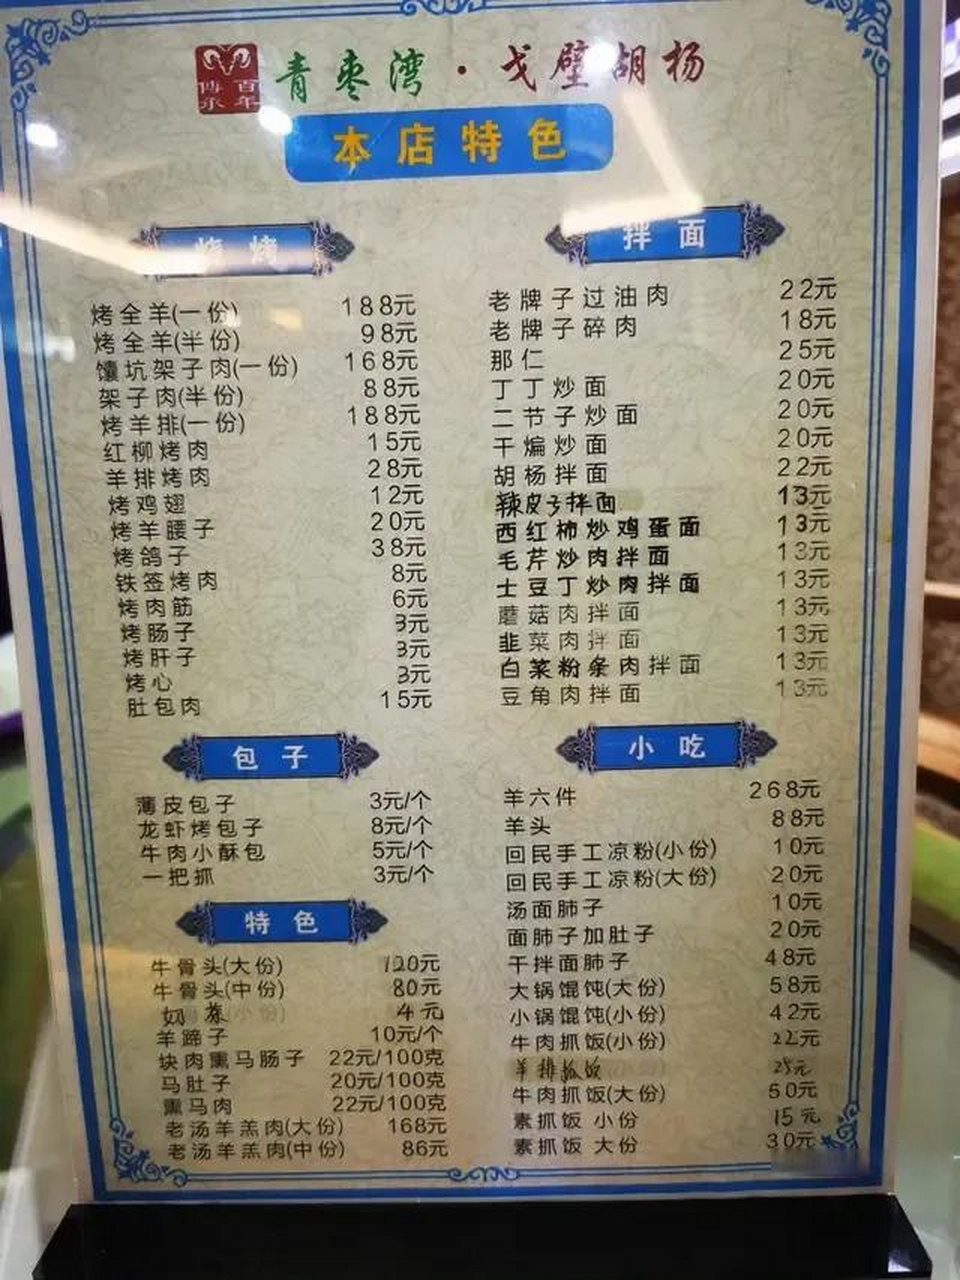 百年
传承
青枣湾·戈壁胡杨
本店特色
烧烤
烤全羊(一份) 188元
烤全羊(半份) 98元
馕坑架子肉(一份) 168元
架子肉(半份) 88元
烤羊排(一份) 188元
红柳烤肉 15元
羊排烤肉 28元
烤鸡翅 12元
烤羊腰子 20元
烤鸽子 38元
铁签烤肉 8元
烤肉筋 6元
烤肠子 3元
烤肝子 3元
烤心 3元
肚包肉 15元
包子
薄皮包子 3元/个
龙虾烤包子 8元/个
牛肉小酥包 5元/个
一把抓 3元/个
特色
牛骨头(大份) 120元
牛骨头(中份) 80元
奶茶 4元
羊蹄子 10元/个
块肉熏马肠子 22元/100克
马肚子 20元/100克
熏马肉 22元/100克
老汤羊羔肉(大份) 168元
老汤羊羔肉(中份) 86元
拌面
老牌子过油肉 22元
老牌子碎肉 18元
那仁 25元
丁丁炒面 20元
二节子炒面 20元
干煸炒面 20元
胡杨拌面 22元
辣皮子拌面 13元
西红柿炒鸡蛋面 13元
毛芹炒肉拌面 13元
土豆丁炒肉拌面 13元
蘑菇肉拌面 13元
韭菜肉拌面 13元
白菜粉条肉拌面 13元
豆角肉拌面 13元
小吃
羊六件 268元
羊头 88元
回民手工凉粉(小份) 10元
回民手工凉粉(大份) 20元
汤面肺子 10元
面肺子加肚子 20元
干拌面肺子 48元
大锅馄饨(大份) 58元
小锅馄饨(小份) 42元
牛肉抓饭(小份) 22元
羊排抓饭 25元
牛肉抓饭(大份) 50元
素抓饭 小份 15元
素抓饭 大份 30元